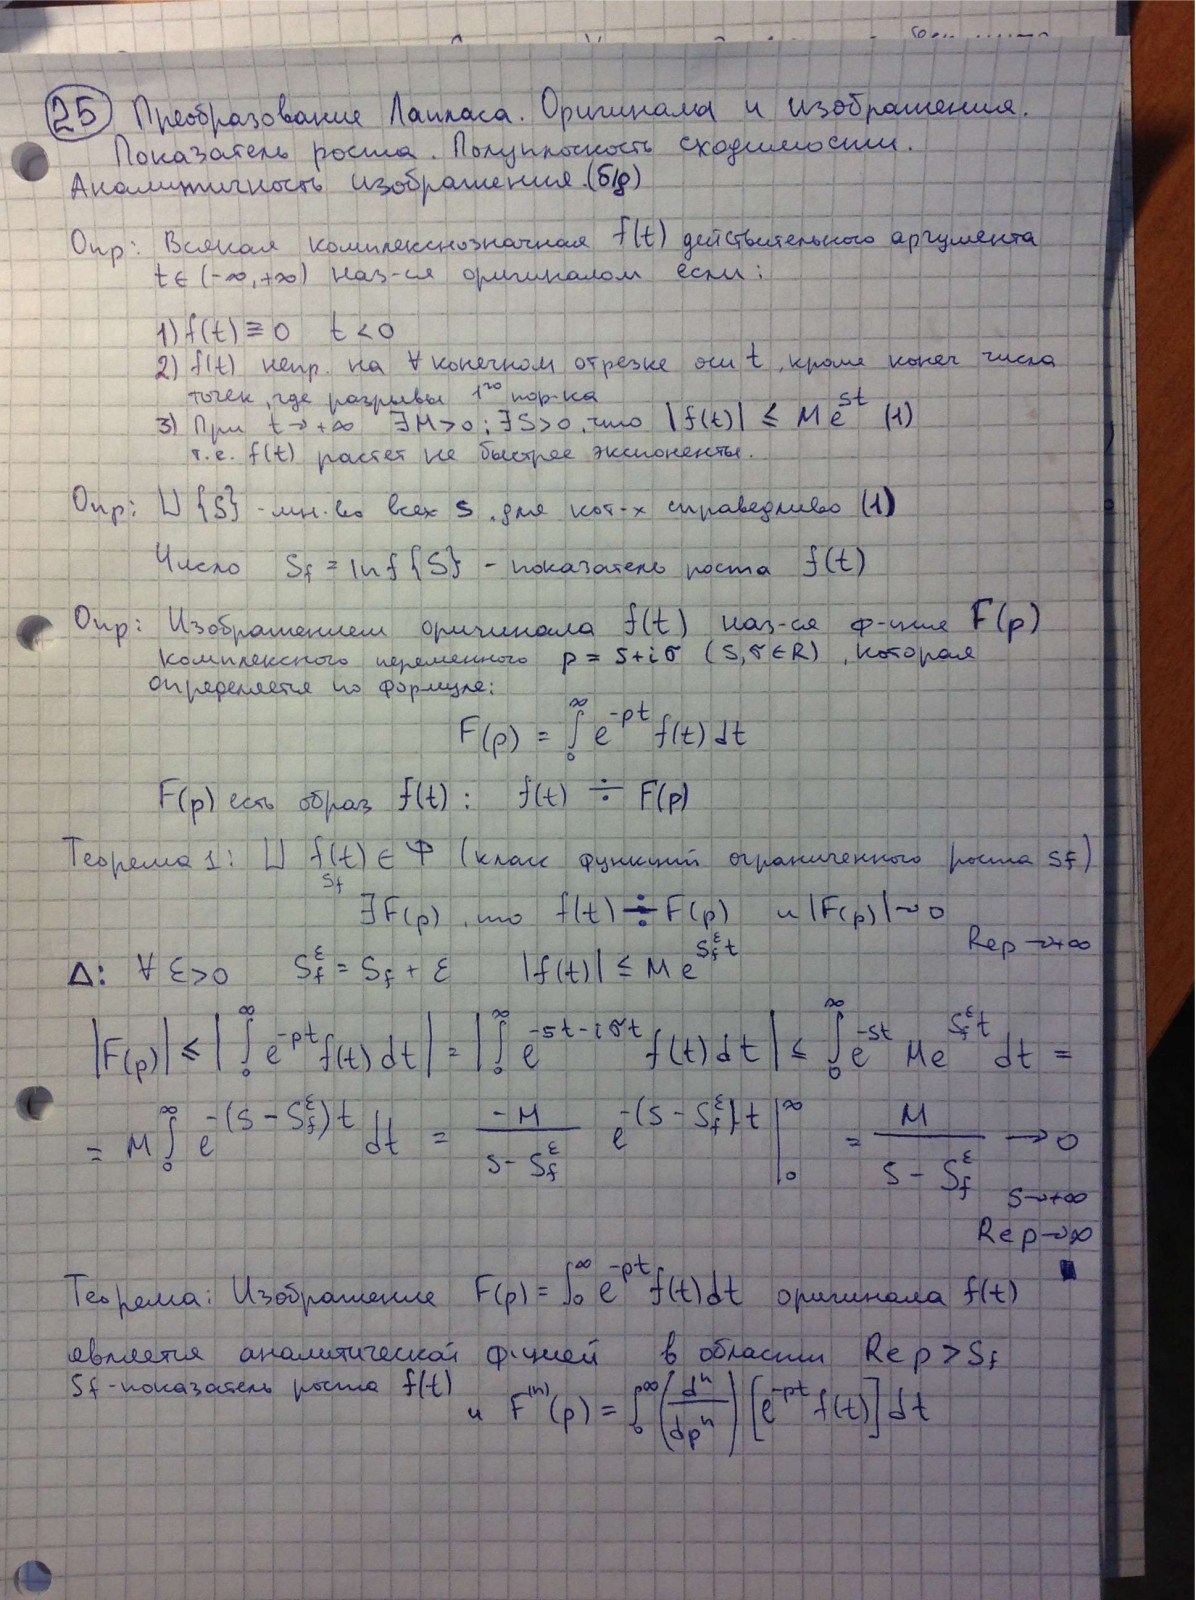 25 Преобразование Лапласа. Оригинал и изображения.
Показатель роста. Полуплоскость сходимости.
Аналитичность изображения. (б/д)
Опр: Всякая комплекснозначная f(t) действительного аргумента
t ∈ (-∞, +∞) наз-ся оригиналом если:
1) f(t) ≡ 0 t < 0
2) f(t) непр. на ∀ конечном отрезке оси t, кроме конеч числа
точек, где разрывы 1го пор-ка
3) При t → +∞ ∃ M > 0; ∃ S > 0, что |f(t)| ≤ Me^{st} (1)
т.е. f(t) растет не быстрее экспоненты.
Опр: ⊔ {S} - мн-во всех s, для кот-х справедливо (1)
Число S_f = inf {S} - показатель роста f(t)
Опр: Изображением оригинала f(t) наз-ся ф-ция F(p)
комплексного переменного p = s + iσ (s, σ ∈ R), которая
определяется по формуле:
F(p) = ∫_0^∞ e^{-pt} f(t) dt
F(p) есть образ f(t): f(t) ÷ F(p)
Теорема 1: ⊔ f(t) ∈ Φ_{S_f} (класс функций ограниченного роста S_f)
∃ F(p), то f(t) ÷ F(p) и |F(p)| → 0
Re p → +∞
Δ: ∀ ε > 0 S_f^ε = S_f + ε |f(t)| ≤ M e^{S_f^ε t}
|F(p)| ≤ |∫_0^∞ e^{-pt} f(t) dt| = |∫_0^∞ e^{-st-iσt} f(t) dt| ≤ ∫_0^∞ e^{-st} M e^{S_f^ε t} dt =
= M ∫_0^∞ e^{-(s - S_f^ε) t} dt = \frac{-M}{s - S_f^ε} e^{-(s - S_f^ε) t} |_0^∞ = \frac{M}{s - S_f^ε} → 0
s → +∞
Re p → ∞
Теорема: Изображение F(p) = ∫_0^∞ e^{-pt} f(t) dt оригинала f(t)
является аналитической ф-цией в области Re p > S_f
S_f - показатель роста f(t)
и F^{(n)}(p) = ∫_0^∞ (\frac{d^n}{dp^n}) [e^{-pt} f(t)] dt